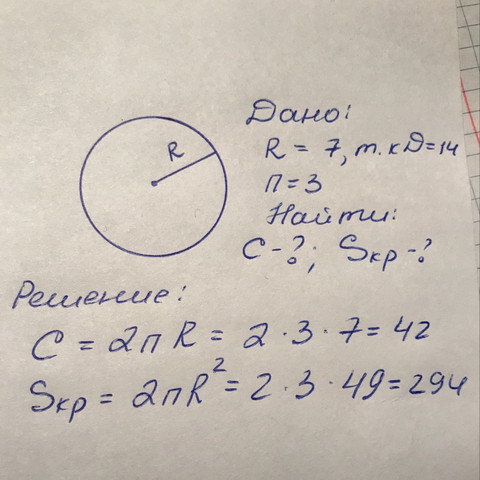 R
Дано:
R = 7, т.к D=14
π=3
Найти:
C-?; Sкр-?
Решение:
C = 2πR = 2·3·7=42
Sкр = 2πR²=2·3·49=294